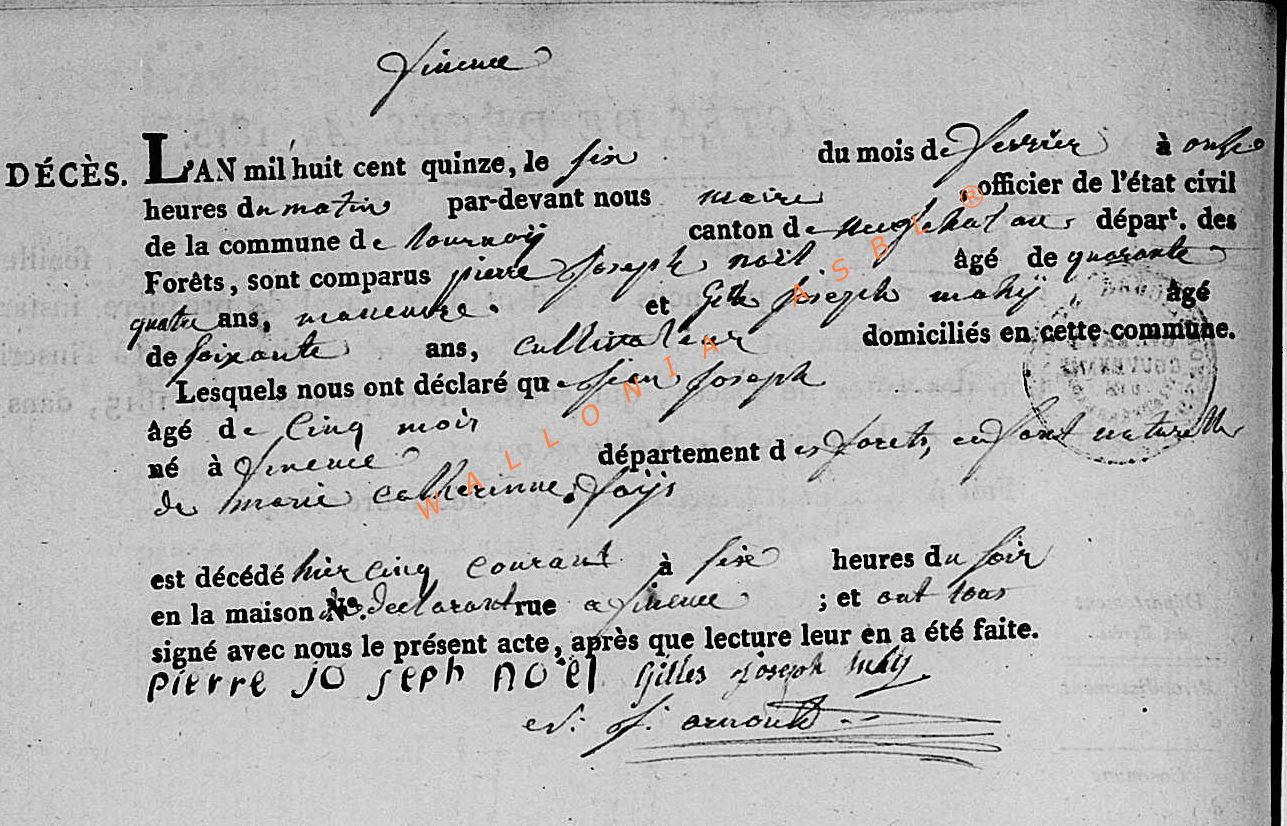 Sinence
DÉCÈS. L'AN mil huit cent quinze, le six du mois de fevrier à onse
heures du matin par-devant nous maire , officier de l'état civil
de la commune de tournaÿ canton de neufchatau, départ. des
Forêts, sont comparus pierre Joseph noël âgé de quarante
quatre ans, maneuvre. et Gille Joseph mahÿ , âgé
de soixante ans, cultivateur domiciliés en cette commune.
Lesquels nous ont déclaré que Jean Joseph
âgé de cinq mois
né à Sinence département des forets, enfant naturelle
de marie catherinne
est décédé hier cinq courant à six heures du soir
en la maison No. declarant rue a Sinence ; et ont tous
signé avec nous le présent acte, après que lecture leur en a été faite.
pierre jo seph noël Gilles Joseph mahÿ
arnould
WALLONIA ASBL ®